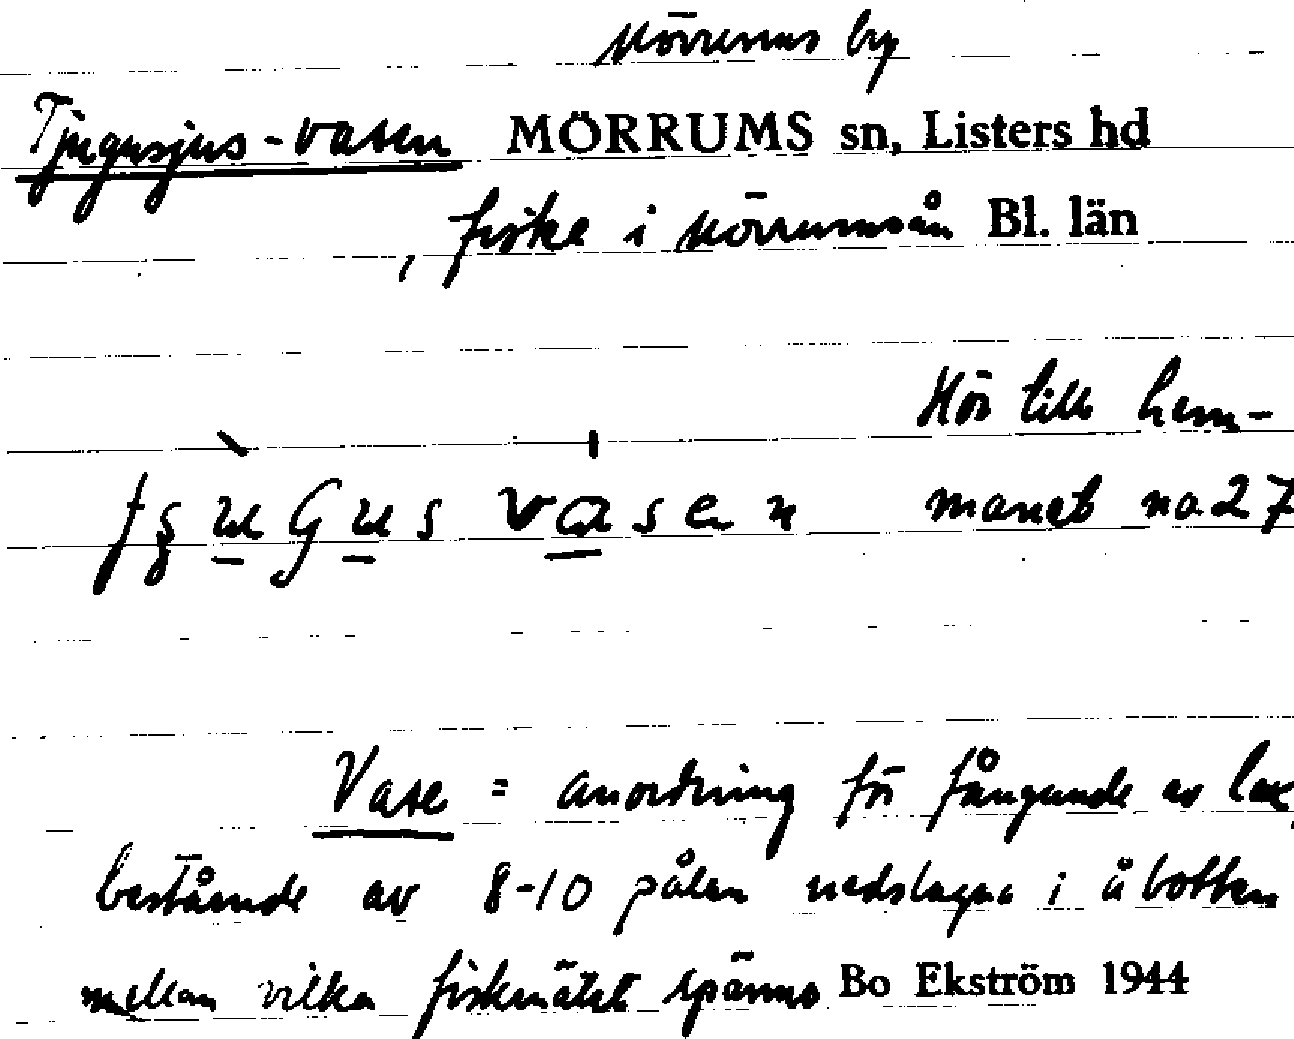 Mörrums by
Tjugusjus-vasen MÖRRUMS sn, Listers hd
, fiske i Mörrumsån Bl. län
Hör till hem-
vasen manet no 27
Vase = anordning för fångande av lax,
bestående av 8-10 pålar nedslagna i åbotten
mellan vilka fisknätet spännes Bo Ekström 1944